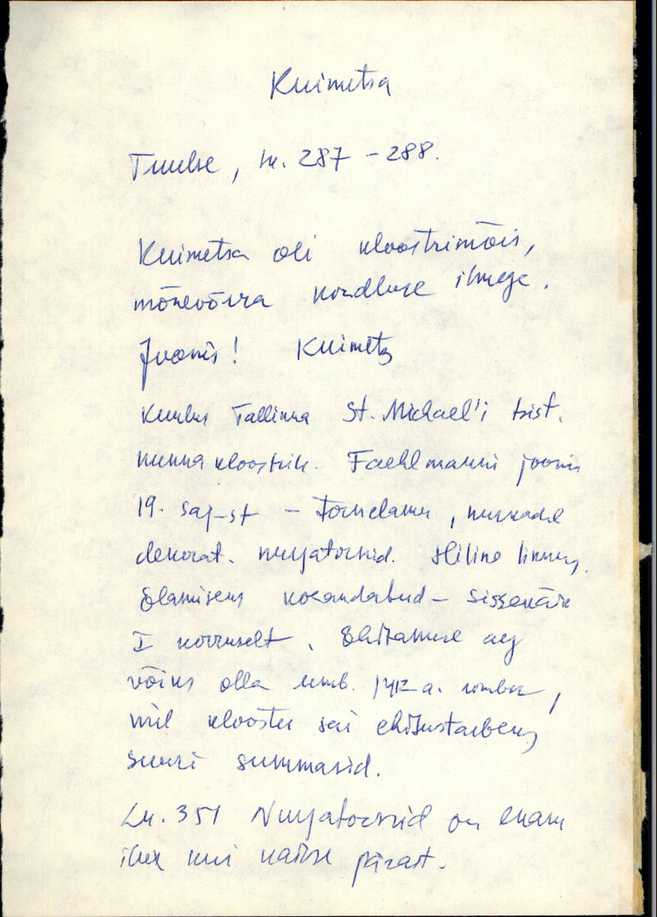 Kuimetsa
Tuulse, lk. 287 - 288.
Kuimetsa oli kloostrimõis,
mõnevõrra kindluse ilmega.
Joonis! Kuimetsa
Kuulus Tallinna St. Michael'i tsist.
nunnakloostrile. Faehlmanni joonis
19. saj-st - tornelamu, nurkadel
dekorat. nurgatornid. Hiline linnus,
Elamiseks kohandatud - sissekäik
I korruselt. Ehitamise aeg
võiks olla umb. 1412 a. umber,
mil klooster sai ehitustarbeks
suuri summasid.
Lk. 351 Nurgatornid on enam
ilu kui kaitse pärast.